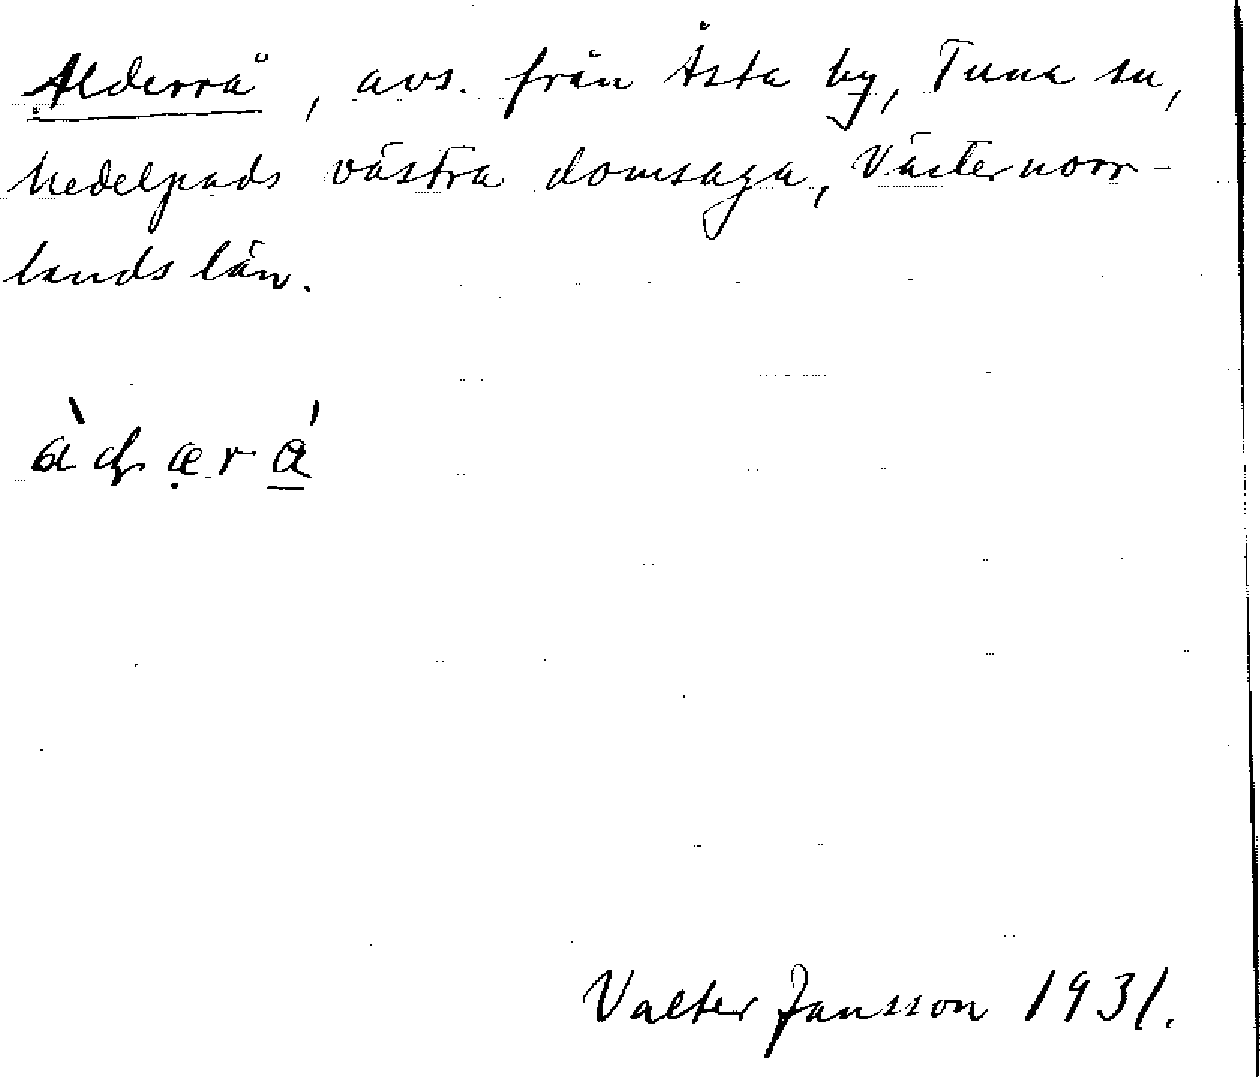 Alderrå, avs. från Åsta by, Tuna sn,
Medelpads västra domsaga, Väster norr-
lands län.
Valter Jansson 1931.